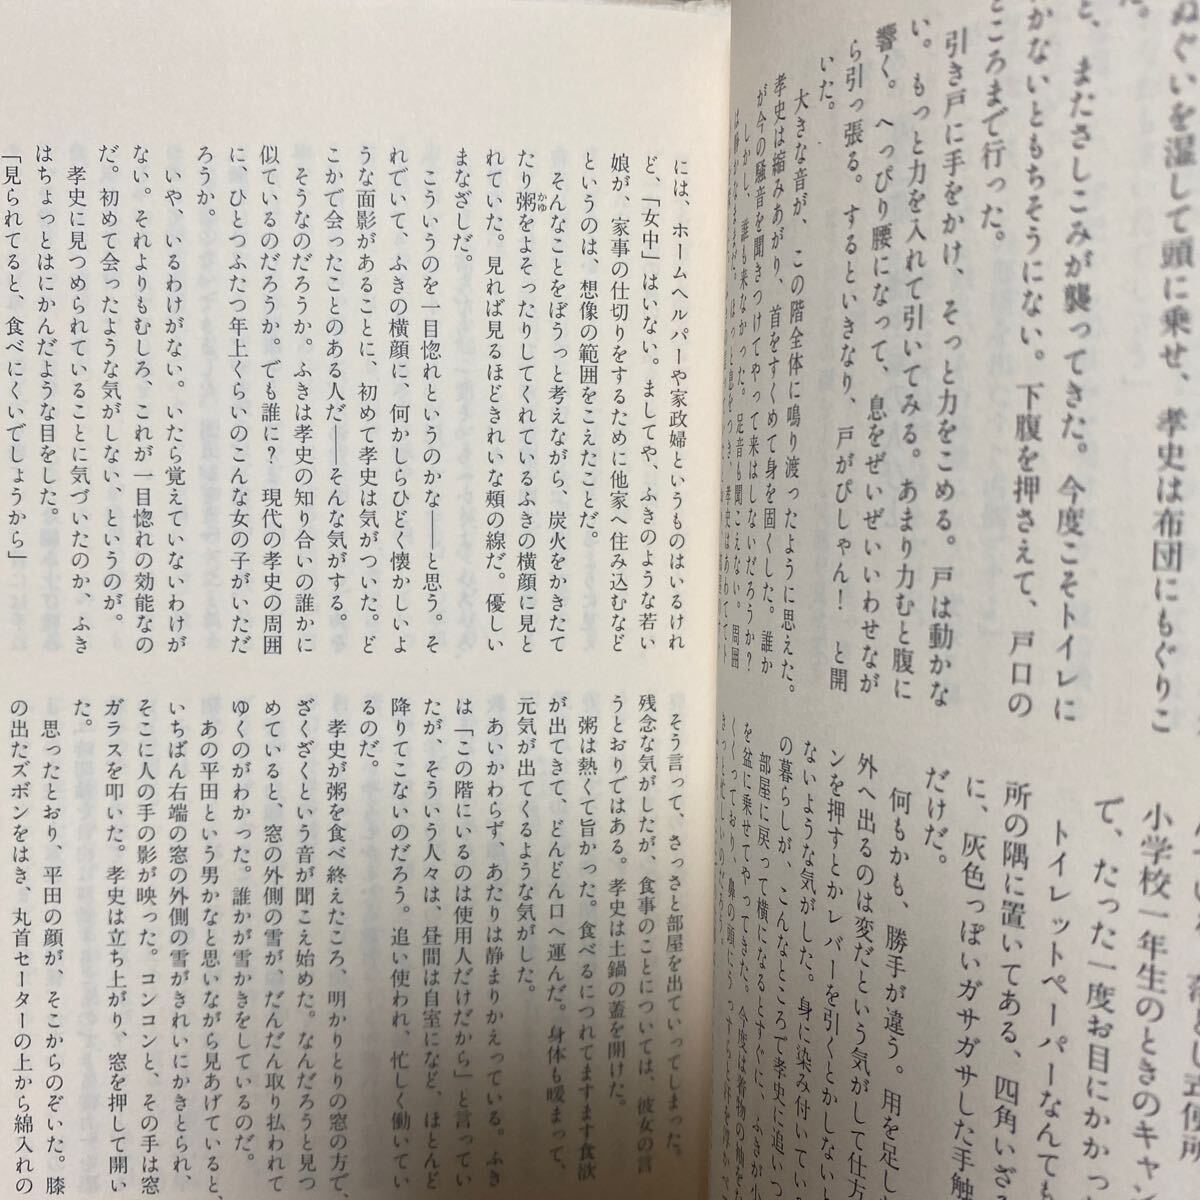 ぬぐいを湿して頭に乗せ、孝史は布団にもぐりこ
だ。
と、またさしこみが襲ってきた。今度こそトイレに
かないともちそうにない。下腹を押さえて、戸口の
ところまで行った。
引き戸に手をかけ、そっと力をこめる。戸は動かな
い。もっと力を入れて引いてみる。あまり力むと腹に
響く。へっぴり腰になって、息をぜいぜいいわせなが
ら引っ張る。するといきなり、戸がぴしゃん！　と開
いた。
大きな音が、この階全体に鳴り渡ったように思えた。
孝史は縮みあがり、首をすくめて身を固くした。誰か
が今の騒音を聞きつけてやって来はしないだろうか？
しかし、誰も来なかった。足音も聞こえない。周囲
は静かなままだ。ほっと息をつき、孝史はあわててト
小学校一年生のときのキャン
て、たった一度お目にかかっ
トイレットペーパーなんても
所の隅に置いてある、四角いざ
に、灰色っぽいガサガサした手触
だけだ。
何もかも、勝手が違う。用を足し
外へ出るのは変だという気がして仕方
ンを押すとかレバーを引くとかしないと
ないような気がした。身に染み付いてい
の暮らしが、こんなところで孝史に追いつ
部屋に戻って横になるとすぐに、ふきが小
を盆に乗せてやってきた。今度は着物の袖をた
くくっており、鼻の頭にうっすらと汗を浮かべ
きっと忙しいのだろう。
には、ホームヘルパーや家政婦というものはいるけれ
ど、「女中」はいない。ましてや、ふきのような若い
娘が、家事の仕切りをするために他家へ住み込むなど
というのは、想像の範囲をこえたことだ。
そんなことをぼうっと考えながら、炭火をかきたて
たり粥をよそったりしてくれているふきの横顔に見と
かゆ
れていた。見れば見るほどきれいな頬の線だ。優しい
まなざしだ。
こういうのを一目惚れというのかな――と思う。そ
れでいて、ふきの横顔に、何かしらひどく懐かしいよ
うな面影があることに、初めて孝史は気がついた。ど
こかで会ったことのある人だ――そんな気がする。
そうなのだろうか。ふきは孝史の知り合いの誰かに
似ているのだろうか。でも誰に？　現代の孝史の周囲
に、ひとつふたつ年上くらいのこんな女の子がいただ
ろうか。
いや、いるわけがない。いたら覚えていないわけが
ない。それよりもむしろ、これが一目惚れの効能なの
だ。初めて会ったような気がしない、というのが。
孝史に見つめられていることに気づいたのか、ふき
はちょっとはにかんだような目をした。
「見られてると、食べにくいでしょうから」
そう言って、さっさと部屋を出ていってしまった。
残念な気がしたが、食事のことについては、彼女の言
うとおりではある。孝史は土鍋の蓋を開けた。
粥は熱くて旨かった。食べるにつれてますます食欲
が出てきて、どんどん口へ運んだ。身体も暖まって、
元気が出てくるような気がした。
あいかわらず、あたりは静まりかえっている。ふき
は「この階にいるのは使用人だけだから」と言ってい
たが、そういう人々は、昼間は自室になど、ほとんど
降りてこないのだろう。追い使われ、忙しく働いてい
るのだ。
孝史が粥を食べ終えたころ、明かりとりの窓の方で、
ざくざくという音が聞こえ始めた。なんだろうと見つ
めていると、窓の外側の雪が、だんだん取り払われて
ゆくのがわかった。誰かが雪かきをしているのだ。
あの平田という男かなと思いながら見あげていると、
いちばん右端の窓の外側の雪がきれいにかきとられ、
そこに人の手の影が映った。コンコンと、その手は窓
ガラスを叩いた。孝史は立ち上がり、窓を押して開い
た。
思ったとおり、平田の顔が、そこからのぞいた。膝
の出たズボンをはき、丸首セーターの上から綿入れの